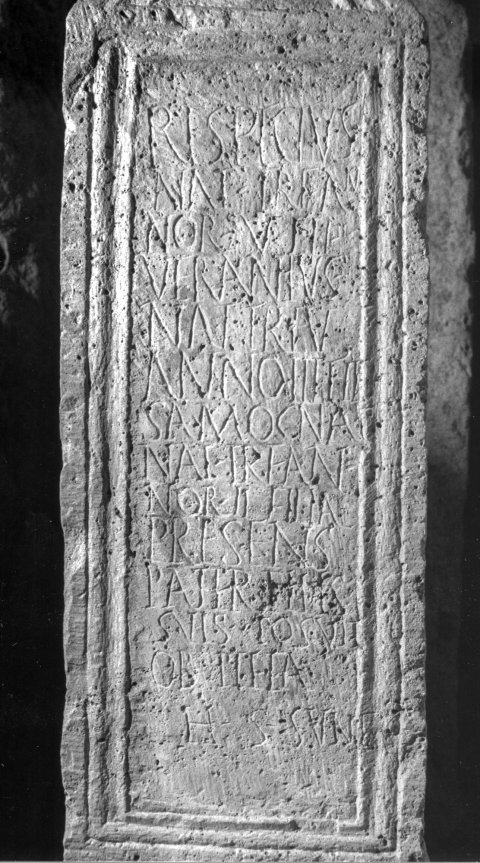 RESPECTVS
NAT TREN
NOR V FILI
VERANIVS
NAT TREV
ANNO III FIL
SAMOCNA
NAT TREAN
NOR II FILIA
PRESENS
PATER HIS
SVIS POSVIT
OB PIETA
H S SVNT